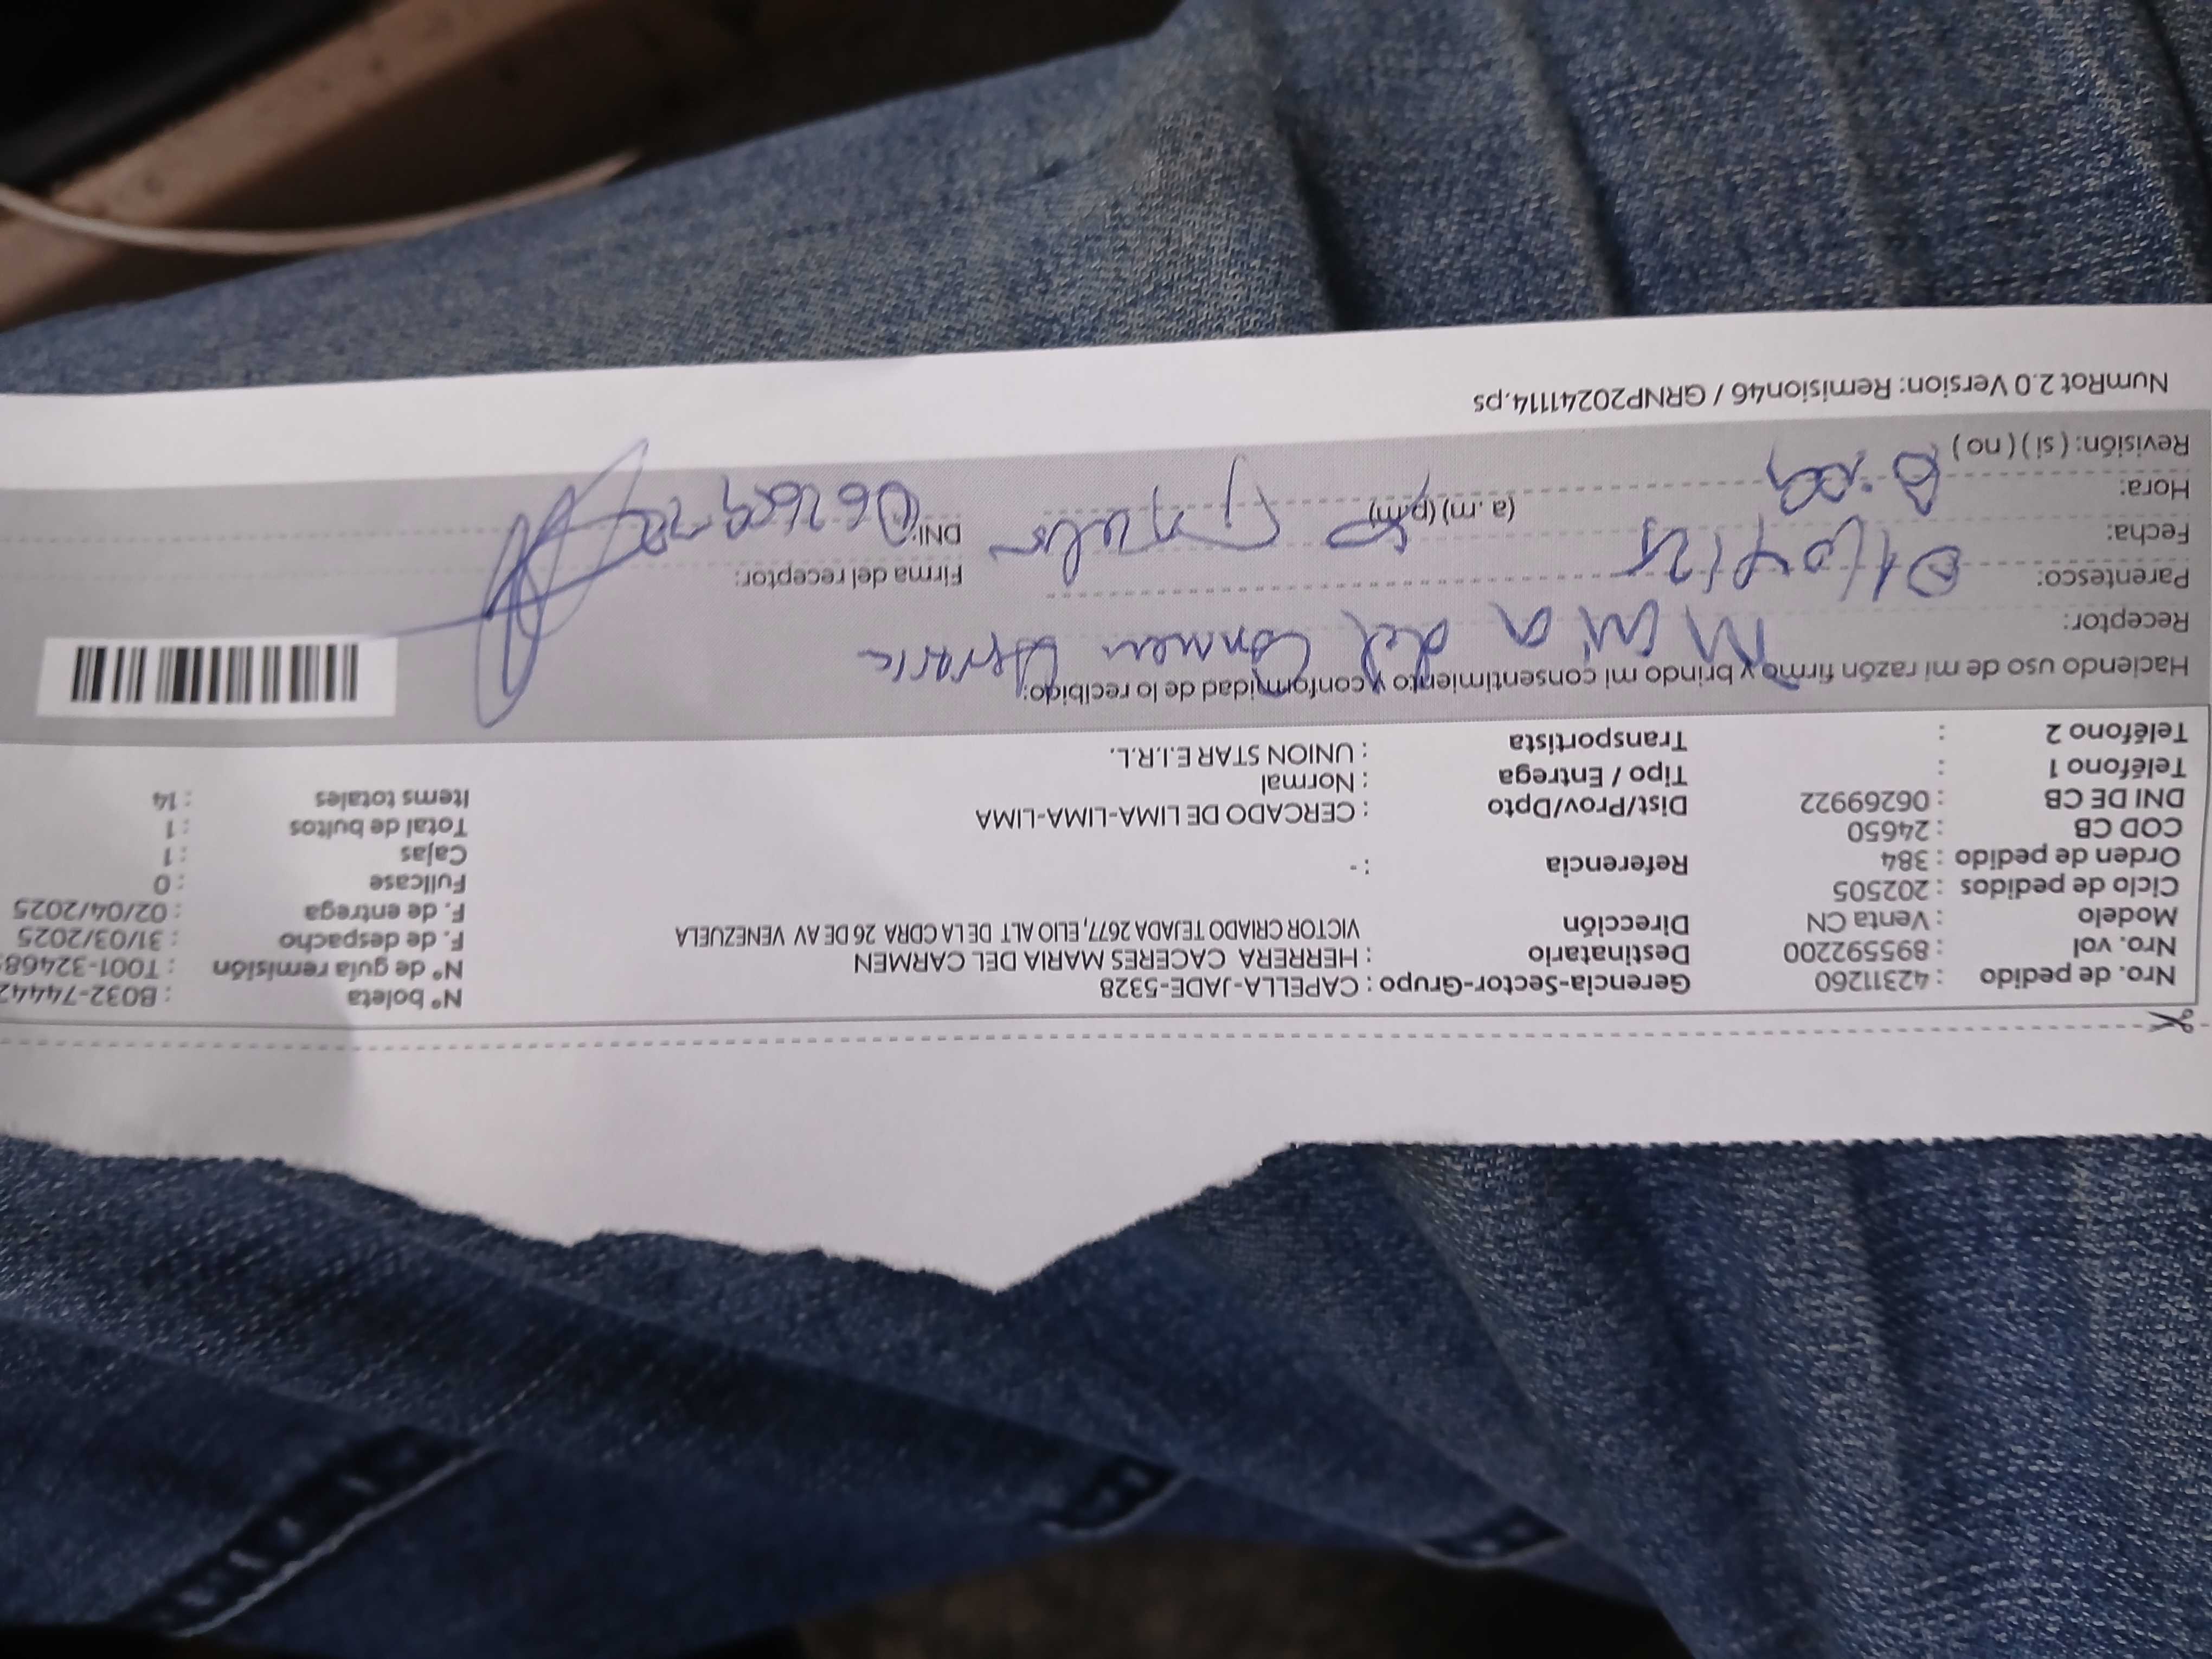 Nro. de pedido : 42311260 Gerencia-Sector-Grupo : CAPELLA-JADE-5328 N° boleta : B032-74442
Nro. vol : 895592200 Destinatario : HERRERA CACERES MARIA DEL CARMEN N° de guía remisión : T001-32468
Modelo : Venta CN Dirección VICTOR CRIADO TEJADA 2677, ELIO ALT DE LA CDRA 26 DE AV VENEZUELA F. de despacho : 31/03/2025
Ciclo de pedidos : 202505 F. de entrega : 02/04/2025
Orden de pedido : 384 Referencia : - Fullcase : 0
COD CB : 24650 Cajas : 1
DNI DE CB : 06269922 Dist/Prov/Dpto : CERCADO DE LIMA-LIMA-LIMA Total de bultos : 1
Teléfono 1 : Tipo / Entrega : Normal Items totales : 14
Teléfono 2 : Transportista : UNION STAR E.I.R.L.
Haciendo uso de mi razón firmo y brindo mi consentimiento y conformidad de lo recibido:
Receptor: Maria del Carmen Herrera
Parentesco: Firma del receptor:
Fecha: 01/04/25 DNI:
Hora: (a. m) (p.m)
Revisión: ( si ) ( no )
NumRot 2.0 Version: Remision46 / GRNP202411114.ps